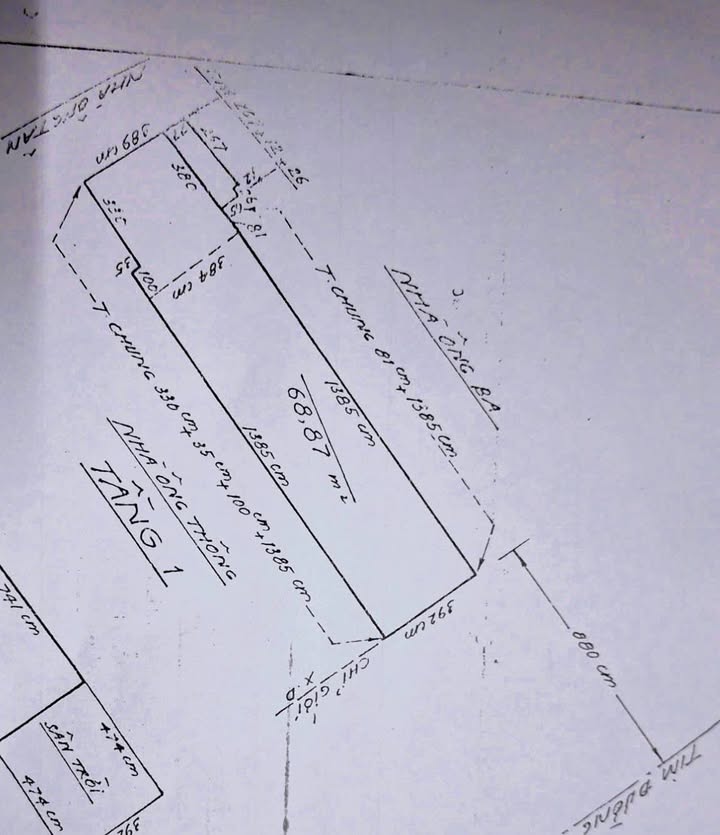 NHÀ ÔNG TÂN
389 cm
267
380
81
384 cm
100
35
T. CHUNG 81 cm + 1385 cm
NHÀ ÔNG BA
T. CHUNG 330 cm + 35 cm + 100 cm + 1385 cm
NHÀ ÔNG THÔNG
TẦNG 1
1385 cm
1385 cm
68,87 m2
392 cm
CHỈ GIỚI
X.D
880 cm
TIM ĐƯỜNG
741 cm
SÂN TRỜI
474 cm
474 cm
392